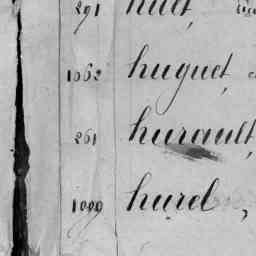 291 huet,
1062 huguet,
261 hurault,
1099 hurel,